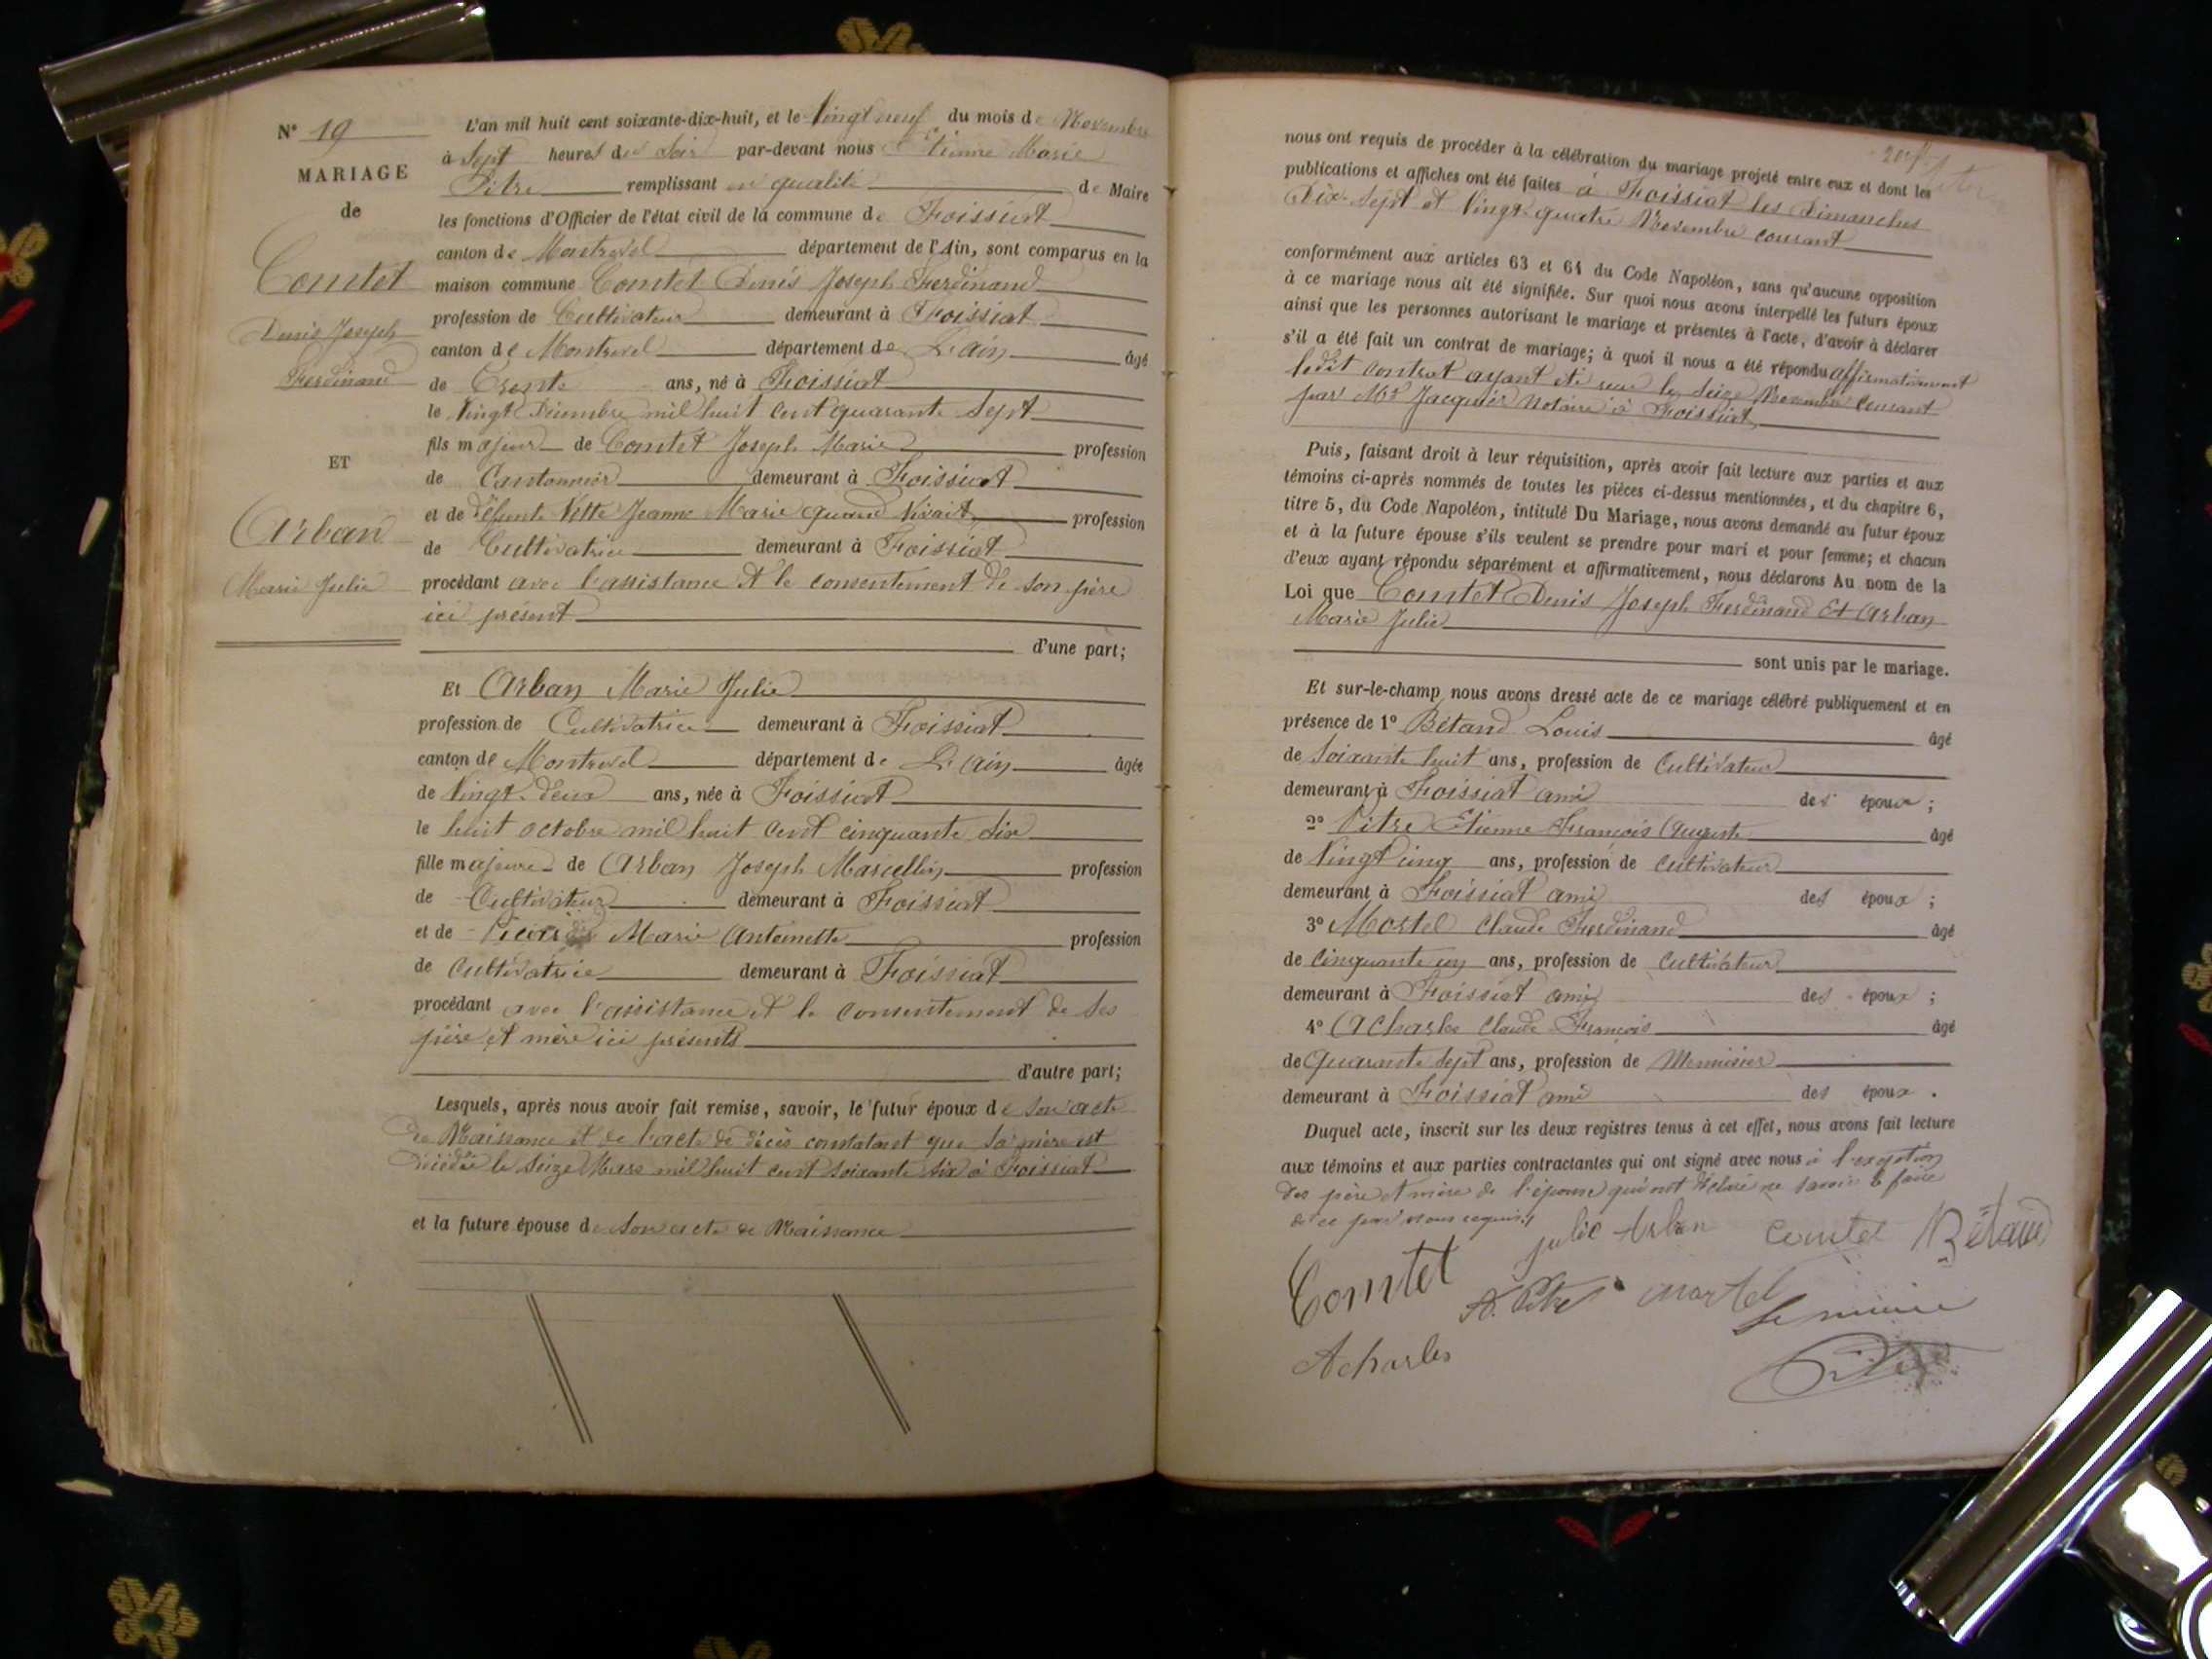 N° 19
MARIAGE
de
Comtet
Denis Joseph
Ferdinand
ET
Arban
Marie Julie
L'an mil huit cent soixante-dix-huit, et le Vingt neuf du mois de Novembre
à Sept heures du Soir par-devant nous Etienne Marie
Pitre remplissant en qualité de Maire
les fonctions d'Officier de l'état civil de la commune de Foissiat
canton de Montrevel département de l'Ain, sont comparus en la
maison commune Comtet Denis Joseph Ferdinand
profession de Cultivateur demeurant à Foissiat
canton de Montrevel département de L'ain âgé
de Trente ans, né à Foissiat
le Vingt Décembre mil huit cent quarante Sept
fils majeur de Comtet Joseph Marie profession
de Cantonnier demeurant à Foissiat
et de défunte Vitte Jeanne Marie quand vivait profession
de Cultivatrice demeurant à Foissiat
procédant avec l'assistance et le consentement de son père
ici présent
d'une part;
Et Arban Marie Julie
profession de Cultivatrice demeurant à Foissiat
canton de Montrevel département de L'ain âgée
de Vingt-deux ans, née à Foissiat
le huit octobre mil huit cent cinquante Six
fille majeure de Arban Joseph Marcellin profession
de Cultivateur demeurant à Foissiat
et de Marie Antoinette profession
de Cultivatrice demeurant à Foissiat
procédant avec l'assistance et le consentement de Ses
père et mère ici présents
d'autre part;
Lesquels, après nous avoir fait remise, savoir, le futur époux de son acte
de Naissance et de l'acte de décès constatant que Sa mère est
décédée le Seize Mars mil huit cent soixante Six à Foissiat
et la future épouse de Son acte de Naissance
nous ont requis de procéder à la célébration du mariage projeté entre eux et dont les
publications et affiches ont été faites à Foissiat les Dimanches
Dix-Sept et Vingt-quatre Novembre courant
conformément aux articles 63 et 64 du Code Napoléon, sans qu'aucune opposition
à ce mariage nous ait été signifiée. Sur quoi nous avons interpellé les futurs époux
ainsi que les personnes autorisant le mariage et présentes à l'acte, d'avoir à déclarer
s'il a été fait un contrat de mariage; à quoi il nous a été répondu affirmativement
ledit contrat ayant été reçu le Seize Novembre courant
par Mre Jacquier Notaire à Foissiat
Puis, faisant droit à leur réquisition, après avoir fait lecture aux parties et aux
témoins ci-après nommés de toutes les pièces ci-dessus mentionnées, et du chapitre 6,
titre 5, du Code Napoléon, intitulé Du Mariage, nous avons demandé au futur époux
et à la future épouse s'ils veulent se prendre pour mari et pour femme; et chacun
d'eux ayant répondu séparément et affirmativement, nous déclarons Au nom de la
Loi que Comtet Denis Joseph Ferdinand Et Arban
Marie Julie
sont unis par le mariage.
Et sur-le-champ nous avons dressé acte de ce mariage célébré publiquement et en
présence de 1° Bétand Louis âgé
de Soixante huit ans, profession de Cultivateur
demeurant à Foissiat ami des époux ;
2° Pitre Etienne François Auguste âgé
de Vingt cinq ans, profession de Cultivateur
demeurant à Foissiat ami des époux ;
3° Mortel Claude Ferdinand âgé
de Cinquante un ans, profession de Cultivateur
demeurant à Foissiat ami des époux ;
4° Acharles Claude François âgé
de Quarante Sept ans, profession de Menuisier
demeurant à Foissiat ami des époux .
Duquel acte, inscrit sur les deux registres tenus à cet effet, nous avons fait lecture
aux témoins et aux parties contractantes qui ont signé avec nous à l'exeption
des père et mère de l'épouse qui ont déclaré ne savoir le faire
de ce par nous requis
julie Arban Comtet Bétand
Comtet A. Pitre Mortel
Le maire
Acharles Pitre